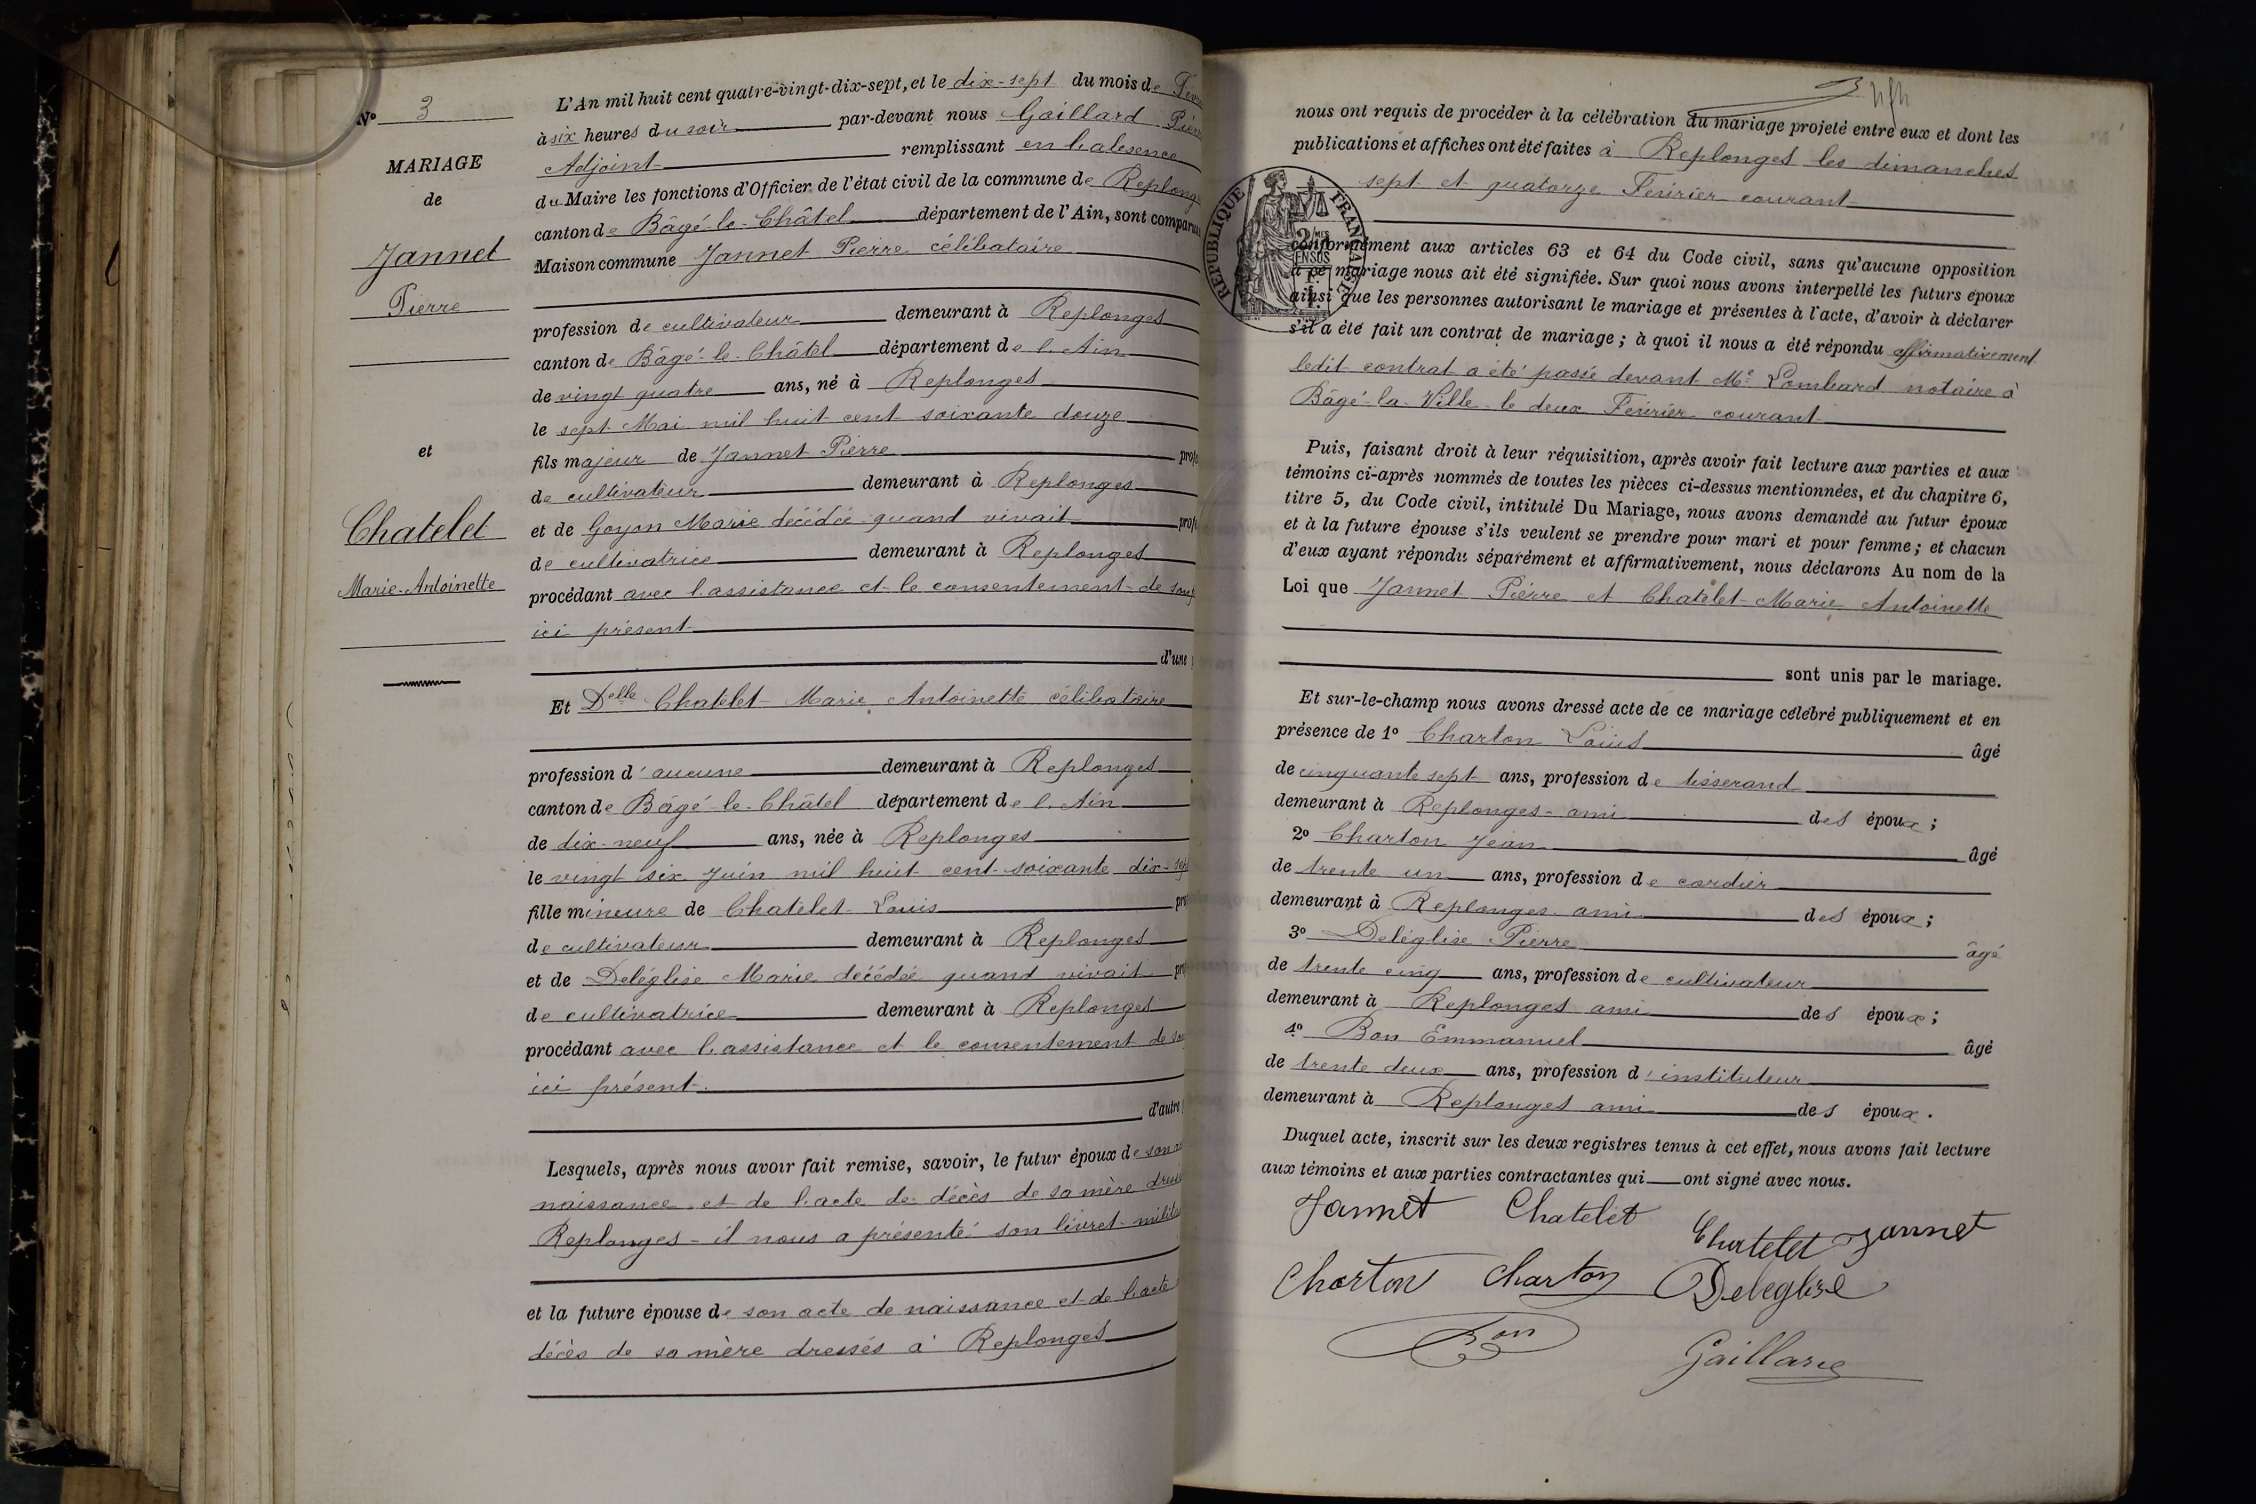 Nº 3
MARIAGE
de
Jannet
Pierre
et
Chatelet
Marie-Antoinette
L'An mil huit cent quatre-vingt-dix-sept, et le dix-sept du mois de Fév
à six heures du soir par-devant nous Gaillard Pierre
Adjoint remplissant en l'absence
du Maire les fonctions d'Officier de l'état civil de la commune de Replong
canton de Bâgé-le-Châtel département de l'Ain, sont comparu
Maison commune Jannet Pierre célibataire
profession de cultivateur demeurant à Replonges
canton de Bâgé-le-Châtel département de l'Ain
de vingt quatre ans, né à Replonges
le sept Mai mil huit cent soixante douze
fils majeur de Jannet Pierre prof
de cultivateur demeurant à Replonges
et de Goyon Marie décédée quand vivait prof
de cultivatrice demeurant à Replonges
procédant avec l'assistance et le consentement de son
ici présent
d'une
Et Delle Chatelet Marie Antoinette célibataire
profession d'aucune demeurant à Replonges
canton de Bâgé-le-Châtel département de l'Ain
de dix-neuf ans, née à Replonges
le vingt six Juin mil huit cent soixante dix-sep
fille mineure de Chatelet Louis pr
de cultivateur demeurant à Replonges
et de Deléglise Marie décédée quand vivait pr
de cultivatrice demeurant à Replonges
procédant avec l'assistance et le consentement de so
ici présent
d'autre
Lesquels, après nous avoir fait remise, savoir, le futur époux de son a
naissance et de l'acte de décès de sa mère dressé
Replonges - il nous a présenté son livret milita
et la future épouse de son acte de naissance et de l'acte
décès de sa mère dressés à Replonges
nous ont requis de procéder à la célébration du mariage projeté entre eux et dont les
publications et affiches ont été faites à Replonges les dimanches
sept et quatorze Février courant
RÉPUBLIQUE FRANÇAISE
conformément aux articles 63 et 64 du Code civil, sans qu'aucune opposition
à ce mariage nous ait été signifiée. Sur quoi nous avons interpellé les futurs époux
ainsi que les personnes autorisant le mariage et présentes à l'acte, d'avoir à déclarer
s'il a été fait un contrat de mariage ; à quoi il nous a été répondu affirmativement
ledit contrat a été passé devant Me Lombard notaire à
Bâgé-la-Ville le deux Février courant
Puis, faisant droit à leur réquisition, après avoir fait lecture aux parties et aux
témoins ci-après nommés de toutes les pièces ci-dessus mentionnées, et du chapitre 6,
titre 5, du Code civil, intitulé Du Mariage, nous avons demandé au futur époux
et à la future épouse s'ils veulent se prendre pour mari et pour femme ; et chacun
d'eux ayant répondu séparément et affirmativement, nous déclarons Au nom de la
Loi que Jannet Pierre et Chatelet Marie Antoinette
sont unis par le mariage.
Et sur-le-champ nous avons dressé acte de ce mariage célébré publiquement et en
présence de 1º Charton Louis âgé
de cinquante sept ans, profession de tisserand
demeurant à Replonges ami des époux ;
2º Charton Jean âgé
de trente un ans, profession de cordier
demeurant à Replonges ami des époux ;
3º Deléglise Pierre âgé
de trente cinq ans, profession de cultivateur
demeurant à Replonges ami des époux ;
4º Bon Emmanuel âgé
de trente deux ans, profession d'instituteur
demeurant à Replonges ami des époux.
Duquel acte, inscrit sur les deux registres tenus à cet effet, nous avons fait lecture
aux témoins et aux parties contractantes qui ont signé avec nous.
Jannet Chatelet Chatelet Jannet
Charton Charton Deleglise
Bon Gaillard